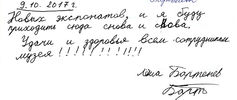 9.10.2017г.
Новых экспонатов, и я буду
приходить сюда снова и снова.
Удачи и здоровья всем сотрудникам
музея !!!!!!!!!!!!!
Бартенев